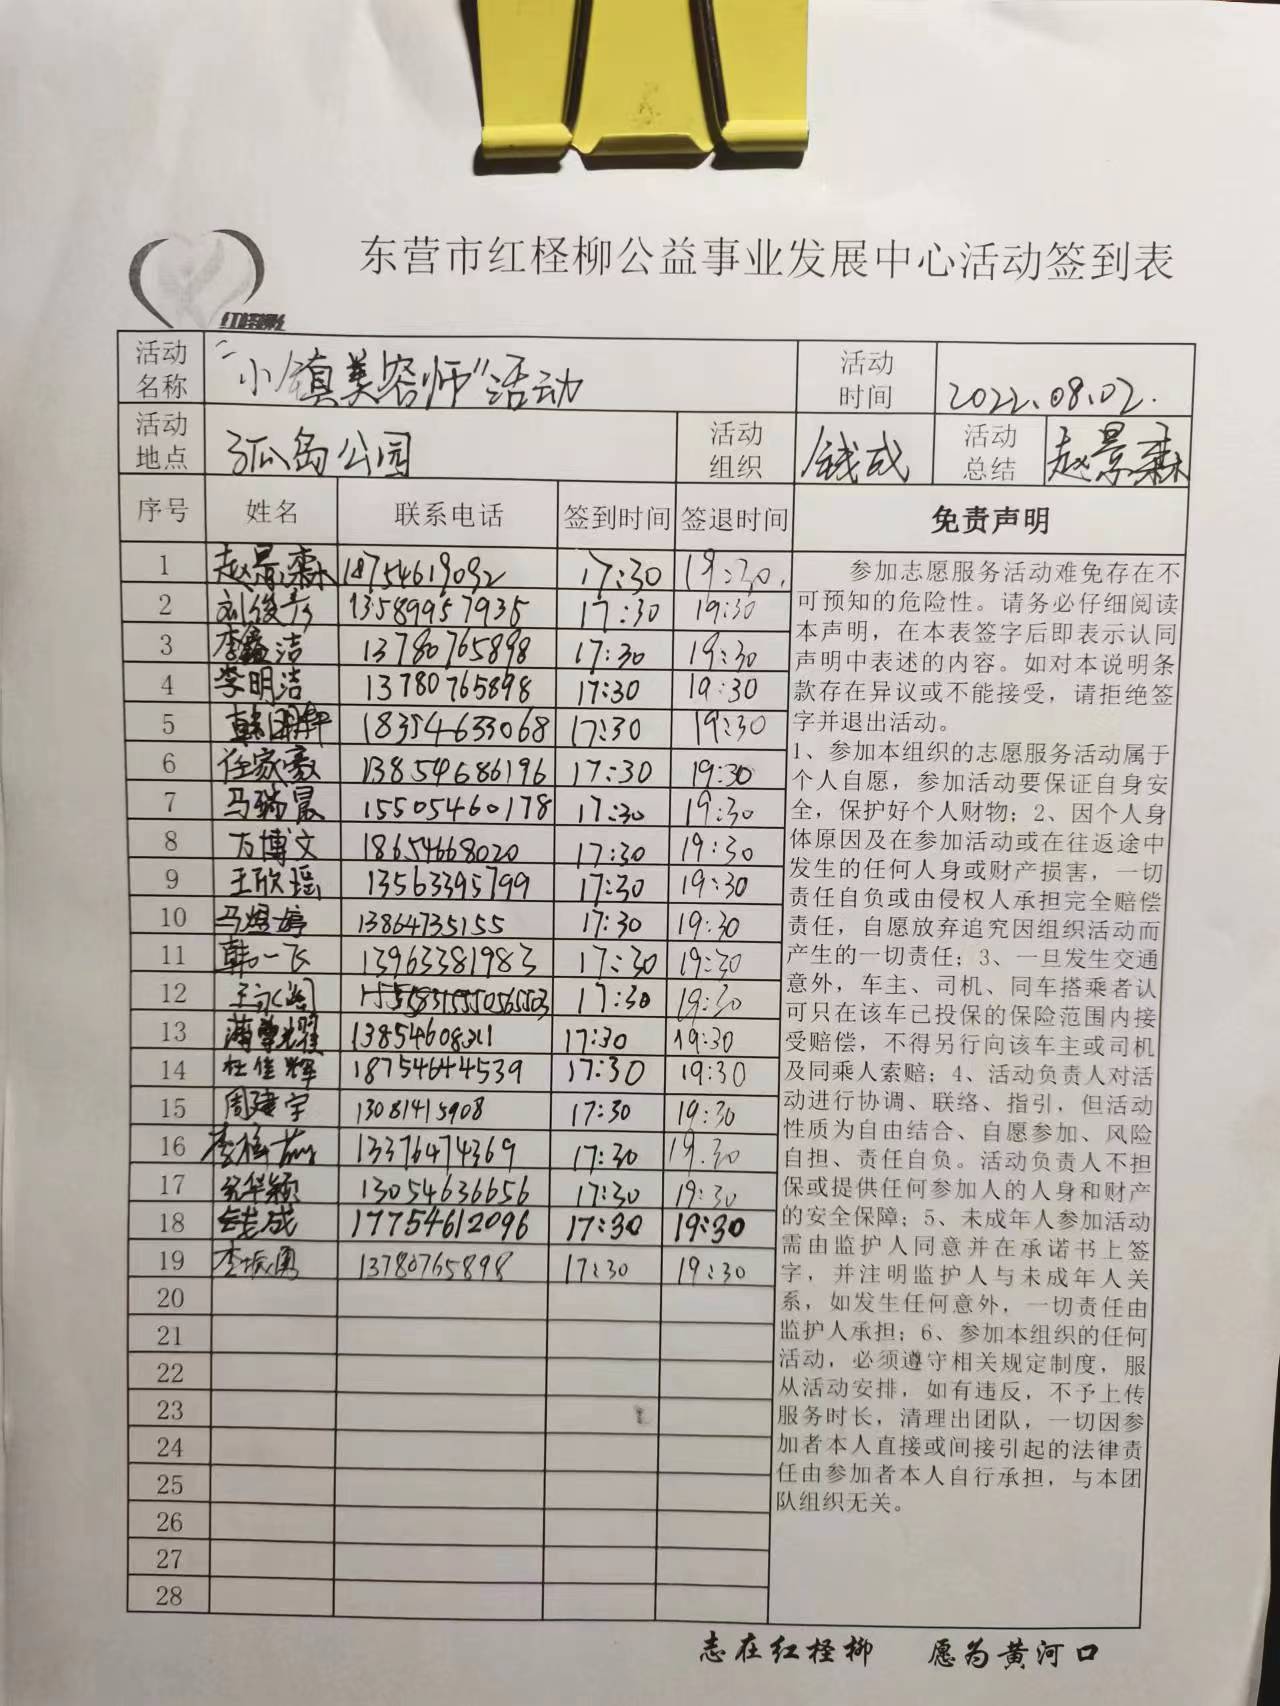 东营市红柽柳公益事业发展中心活动签到表
红柽柳
活动名称 “小镇美容师”活动 活动时间 2022.08.02.
活动地点 孤岛公园 活动组织 钱成 活动总结 赵景森
序号 姓名 联系电话 签到时间 签退时间 免责声明
1 赵景森 18754619092 17:30 19:30.
2 刘俊彦 13589957935 17:30 19:30
3 李鑫洁 13780765898 17:30 19:30
4 李明洁 13780765898 17:30 19:30
5 韩明轩 18354633068 17:30 19:30
6 任家豪 13854686196 17:30 19:30
7 马瑞晨 15505460178 17:30 19:30
8 万博文 18654668020 17:30 19:30
9 王欣瑶 13563395799 17:30 19:30
10 马煜婷 13864735155 17:30 19:30
11 韩一飞 13963381983 17:30 19:30
12 17:30 19:30
13 13854608211 17:30 19:30
14 杜佳辉 18754644539 17:30 19:30
15 周建宇 13081415908 17:30 19:30
16 13376474369 17:30 19:30
17 13054636656 17:30 19:30
18 钱成 17754612096 17:30 19:30
19 李振勇 13780765898 17:30 19:30
20
21
22
23
24
25
26
27
28
参加志愿服务活动难免存在不
可预知的危险性。请务必仔细阅读
本声明，在本表签字后即表示认同
声明中表述的内容。如对本说明条
款存在异议或不能接受，请拒绝签
字并退出活动。
1、参加本组织的志愿服务活动属于
个人自愿，参加活动要保证自身安
全，保护好个人财物；2、因个人身
体原因及在参加活动或在往返途中
发生的任何人身或财产损害，一切
责任自负或由侵权人承担完全赔偿
责任，自愿放弃追究因组织活动而
产生的一切责任；3、一旦发生交通
意外，车主、司机、同车搭乘者认
可只在该车已投保的保险范围内接
受赔偿，不得另行向该车主或司机
及同乘人索赔；4、活动负责人对活
动进行协调、联络、指引，但活动
性质为自由结合、自愿参加、风险
自担、责任自负。活动负责人不担
保或提供任何参加人的人身和财产
的安全保障；5、未成年人参加活动
需由监护人同意并在承诺书上签
字，并注明监护人与未成年人关
系，如发生任何意外，一切责任由
监护人承担；6、参加本组织的任何
活动，必须遵守相关规定制度，服
从活动安排，如有违反，不予上传
服务时长，清理出团队，一切因参
加者本人直接或间接引起的法律责
任由参加者本人自行承担，与本团
队组织无关。
志在红柽柳 愿为黄河口